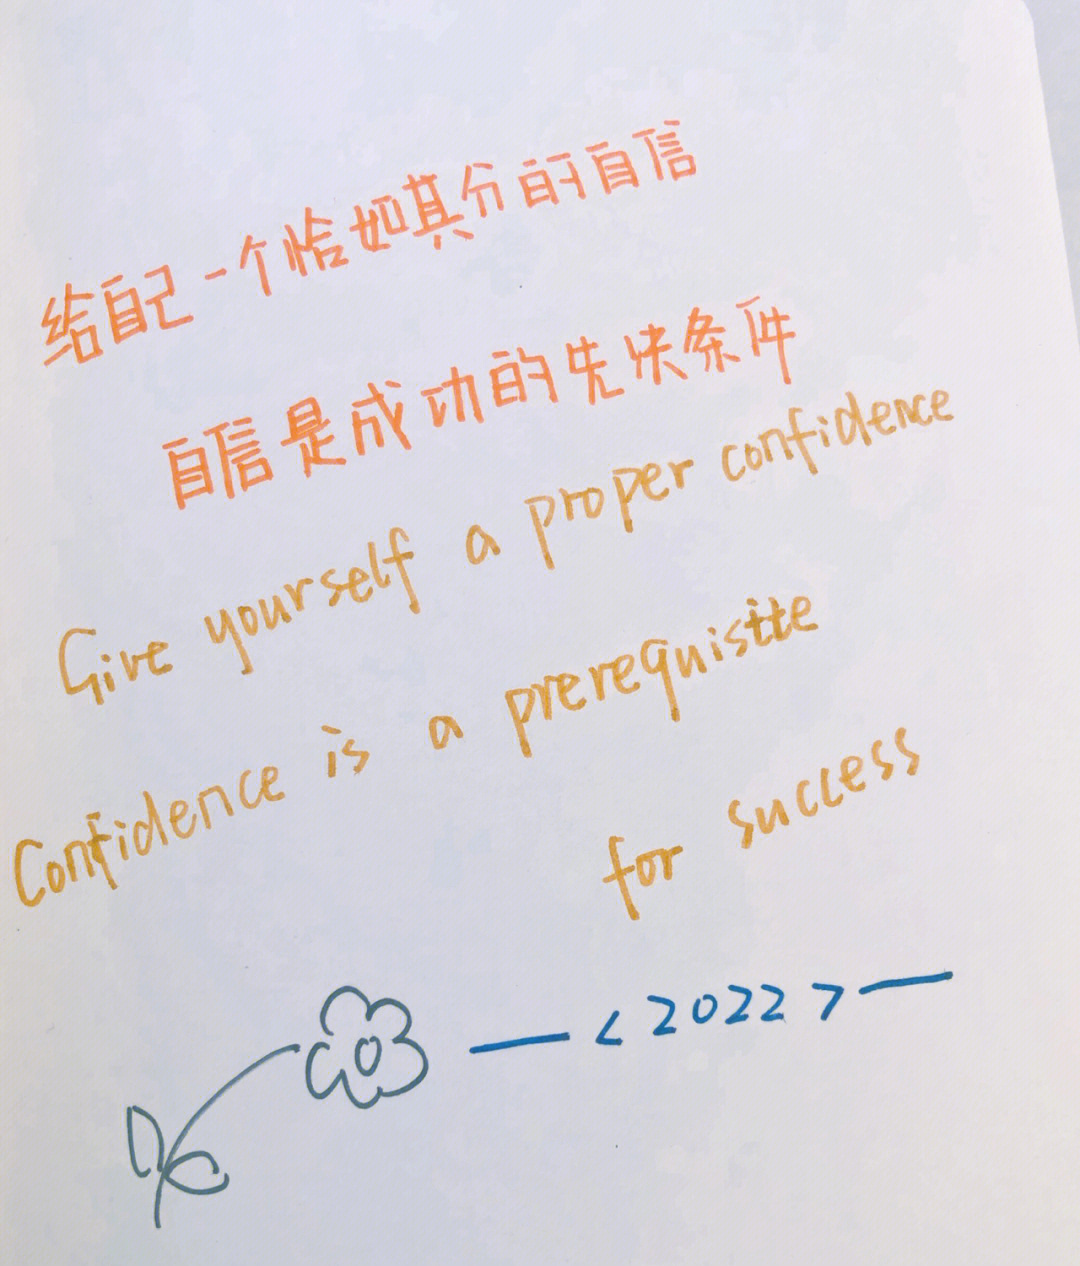 给自己一个恰如其分的自信
自信是成功的先决条件
Give yourself a proper confidence
Confidence is a prerequisitte
for success
—<2022>—